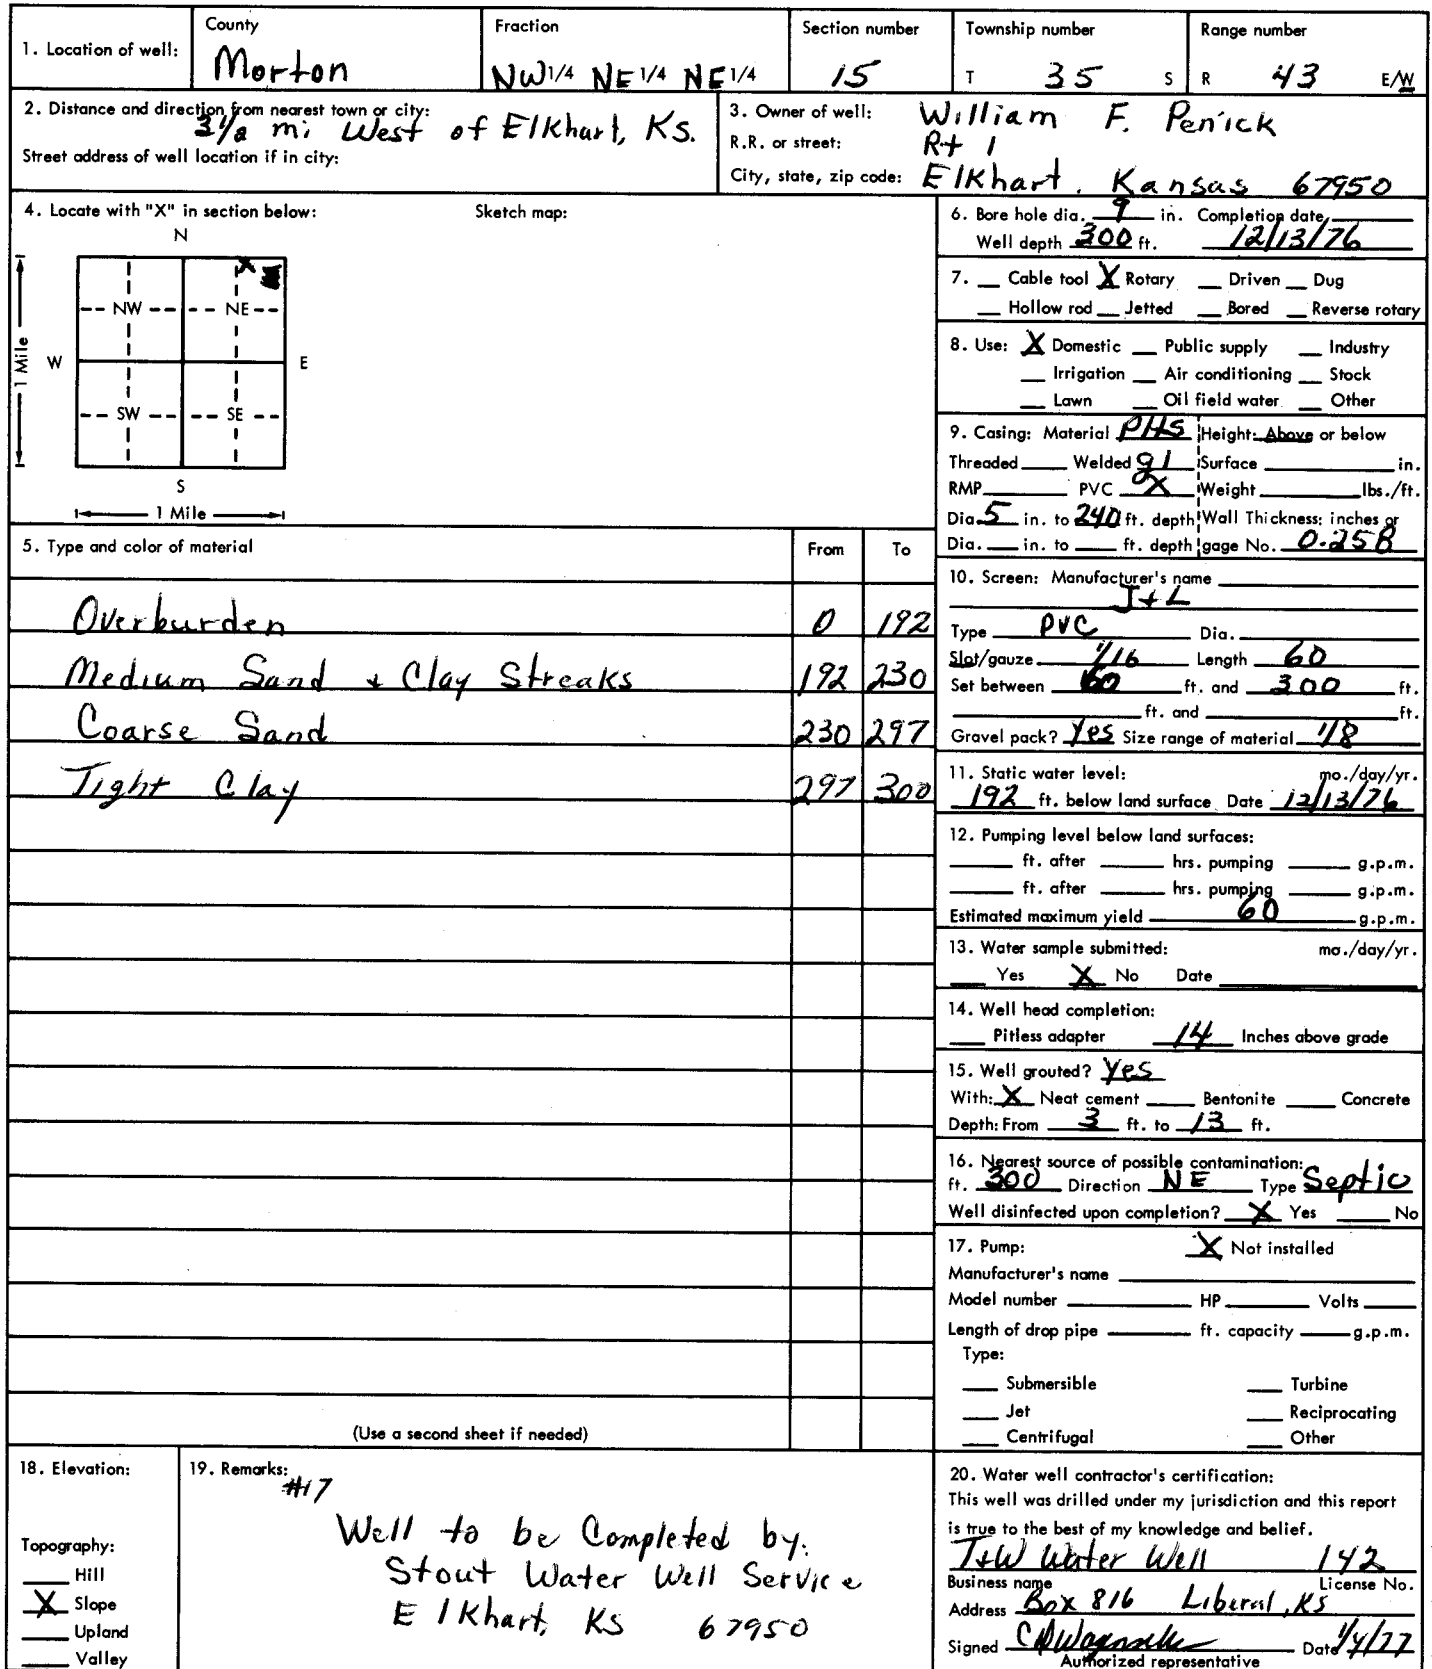 1. Location of well: County Morton Fraction NW 1/4 NE 1/4 NE 1/4 Section number 15 Township number T 35 S Range number R 43 E/W
2. Distance and direction from nearest town or city: 3 1/2 mi West of Elkhart, Ks.
Street address of well location if in city:
3. Owner of well: William F. Penick
R.R. or street: Rt 1
City, state, zip code: Elkhart, Kansas 67950
4. Locate with "X" in section below: Sketch map:
N
X
NW NE
W E
1 Mile
SW SE
S
1 Mile
5. Type and color of material From To
Overburden 0 192
Medium Sand + Clay Streaks 192 230
Coarse Sand 230 297
Tight Clay 297 300
(Use a second sheet if needed)
6. Bore hole dia. 9 in. Completion date
Well depth 300 ft. 12/13/76
7. Cable tool X Rotary Driven Dug
Hollow rod Jetted Bored Reverse rotary
8. Use: X Domestic Public supply Industry
Irrigation Air conditioning Stock
Lawn Oil field water Other
9. Casing: Material Height: Above or below
Threaded Welded gl Surface in.
RMP PVC X Weight lbs./ft.
Dia. 5 in. to 240 ft. depth Wall Thickness: inches or
Dia. in. to ft. depth gage No. 0.258
10. Screen: Manufacturer's name
J+L
Type PVC Dia.
Slot/gauze 1/16 Length 60
Set between ft. and 300 ft.
ft. and ft.
Gravel pack? Yes Size range of material 1/8
11. Static water level: mo./day/yr.
192 ft. below land surface Date 12/13/76
12. Pumping level below land surfaces:
ft. after hrs. pumping g.p.m.
ft. after hrs. pumping g.p.m.
Estimated maximum yield 60 g.p.m.
13. Water sample submitted: mo./day/yr.
Yes X No Date
14. Well head completion:
Pitless adapter 14 Inches above grade
15. Well grouted? Yes
With: X Neat cement Bentonite Concrete
Depth: From 3 ft. to 13 ft.
16. Nearest source of possible contamination:
ft. 300 Direction NE Type Septic
Well disinfected upon completion? X Yes No
17. Pump: X Not installed
Manufacturer's name
Model number HP Volts
Length of drop pipe ft. capacity g.p.m.
Type:
Submersible Turbine
Jet Reciprocating
Centrifugal Other
18. Elevation:
Topography:
Hill
X Slope
Upland
Valley
19. Remarks:
#17
Well to be Completed by.
Stout Water Well Service
Elkhart, Ks 67950
20. Water well contractor's certification:
This well was drilled under my jurisdiction and this report
is true to the best of my knowledge and belief.
T+W Water Well 142
Business name License No.
Address Box 816 Liberal, Ks
Signed Date 1/4/77
Authorized representative